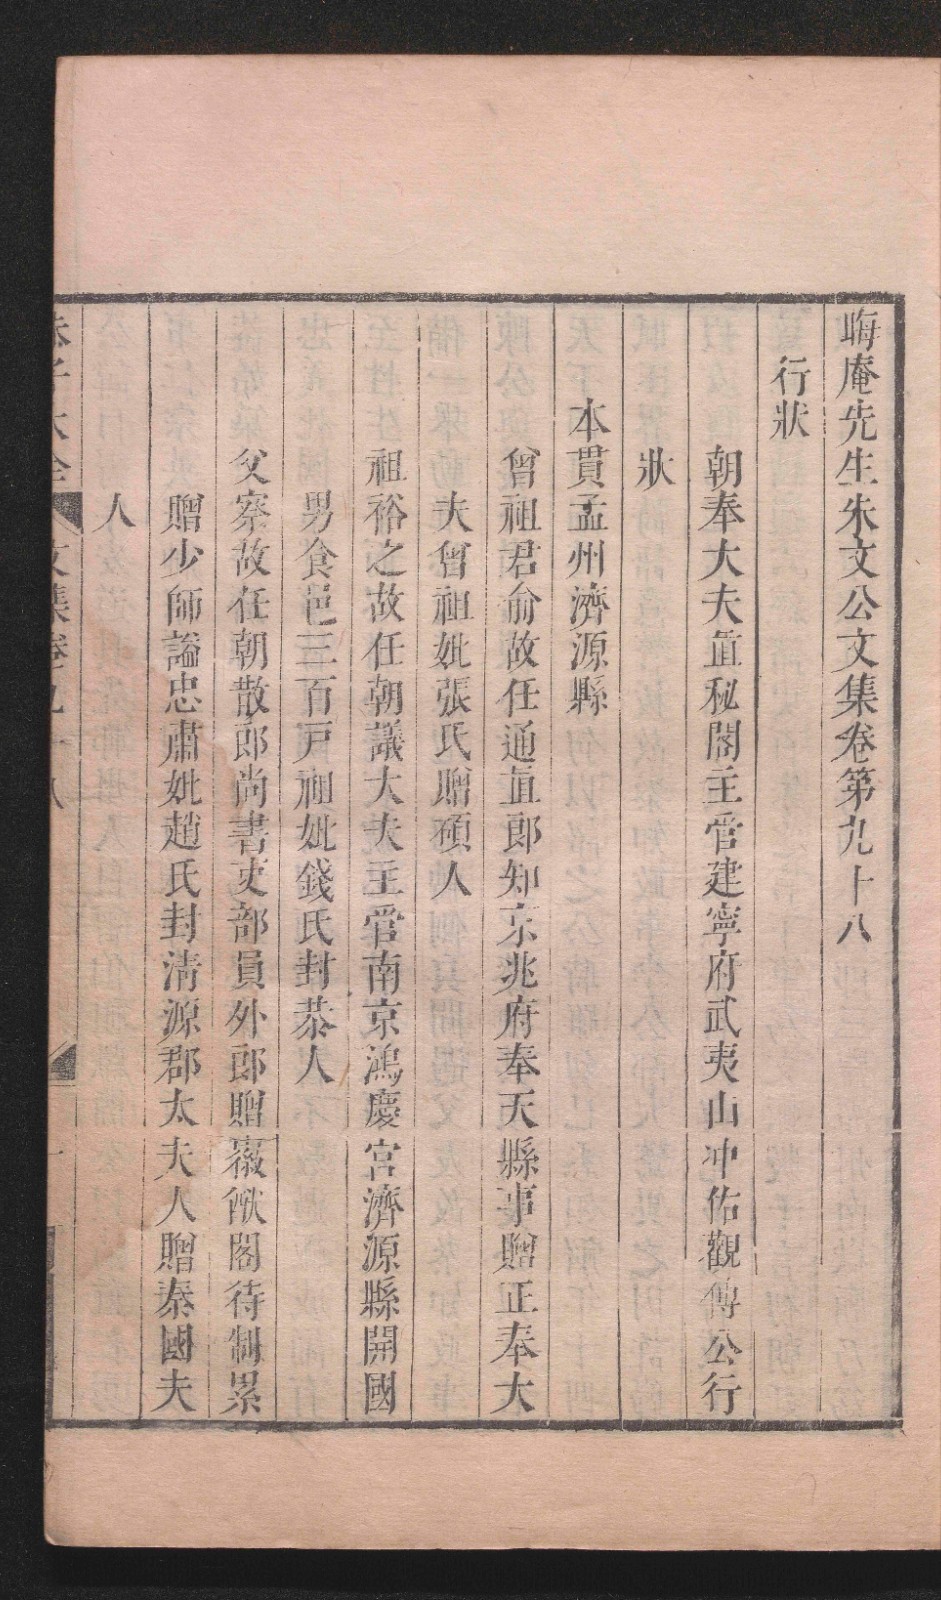 晦庵先生朱文公文集卷第九十八
行狀
朝奉大夫直秘閣主管建寧府武夷山冲佑觀傅公行
狀
本貫孟州濟源縣
曾祖君俞故任通直郎知京兆府奉天縣事贈正奉大
夫曾祖妣張氏贈碩人
祖裕之故任朝議大夫主管南京鴻慶宮濟源縣開國
男食邑三百戸祖妣錢氏封恭人
父察故任朝散郎尚書吏部員外郎贈徽猷閣待制累
贈少師謚忠肅妣趙氏封清源郡太夫人贈秦國夫
人
朱子大全 文集卷九十八 一